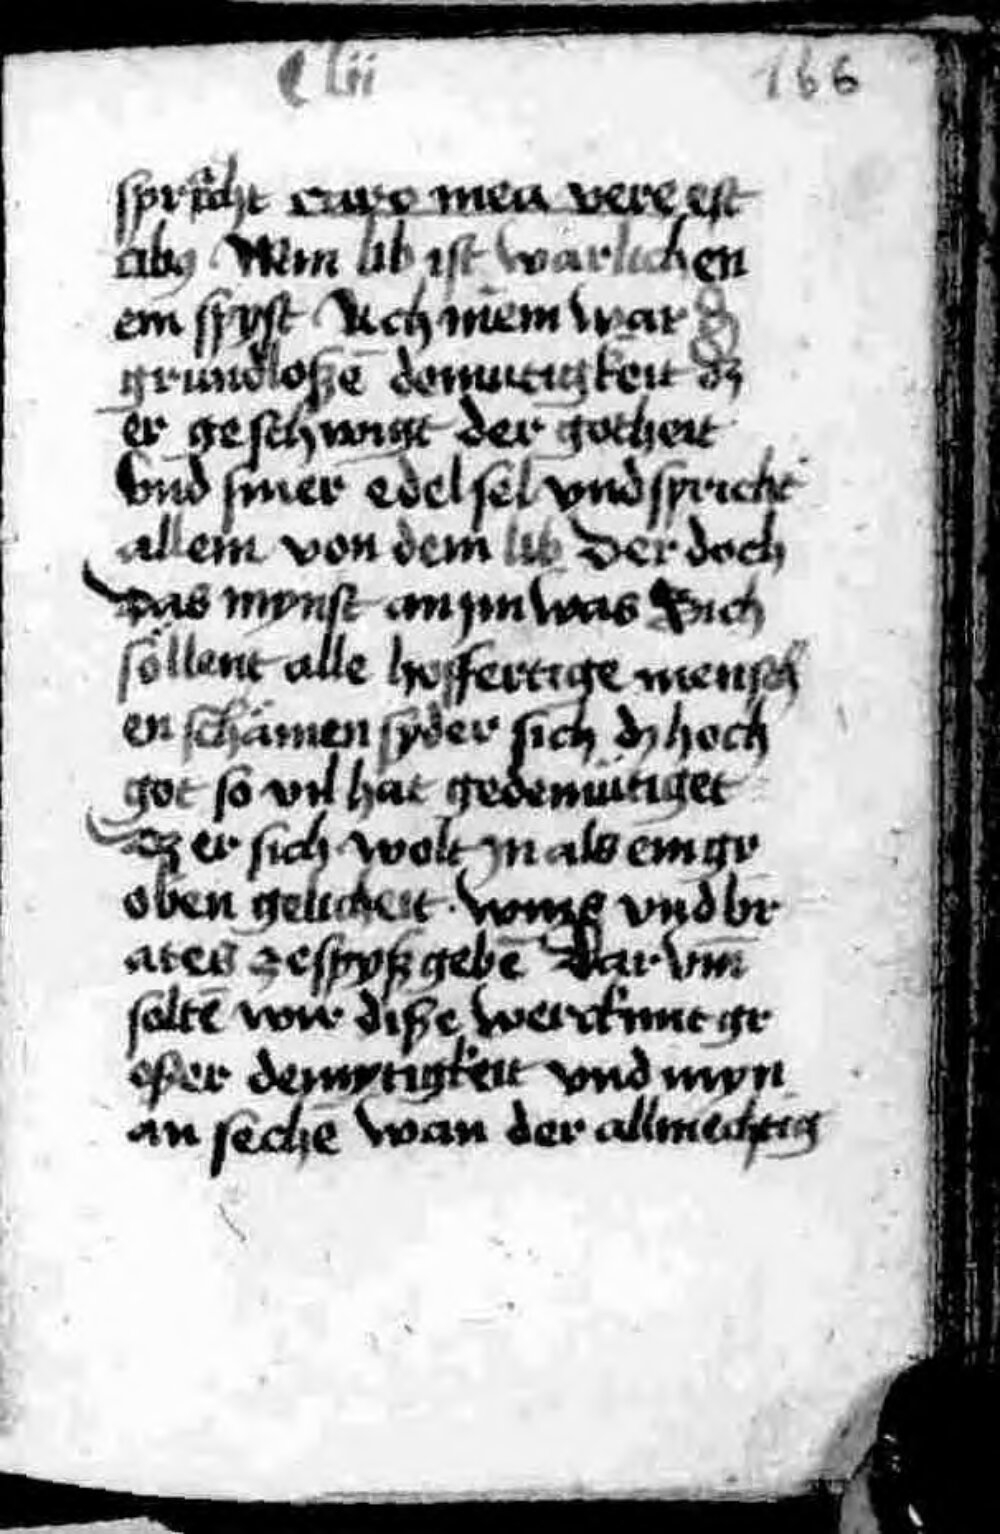 clii 166
spricht caro mea vere est
cibꝰ Min lib ist warlichen
ein spyst Ach niem war
grundlosze̅ domutigkeit dz
er geschwigt der gotheit
vnd siner edel sel vnd spricht
allein von dem lib Der doch
das mynst an jm was Sich
söllent alle hoffertige mensch
en schämen syder sich dz hoch
got so vil hat gedemütiget
dz er sich wolt jn als ein gr
oben gelicheit wins vnd br
ates ze spysz gebe̅ Dar vm̅
solte̅ wir disze werck mit gr
oszer demytigkeit vnd myn
an seche̅ wan der allmechtig